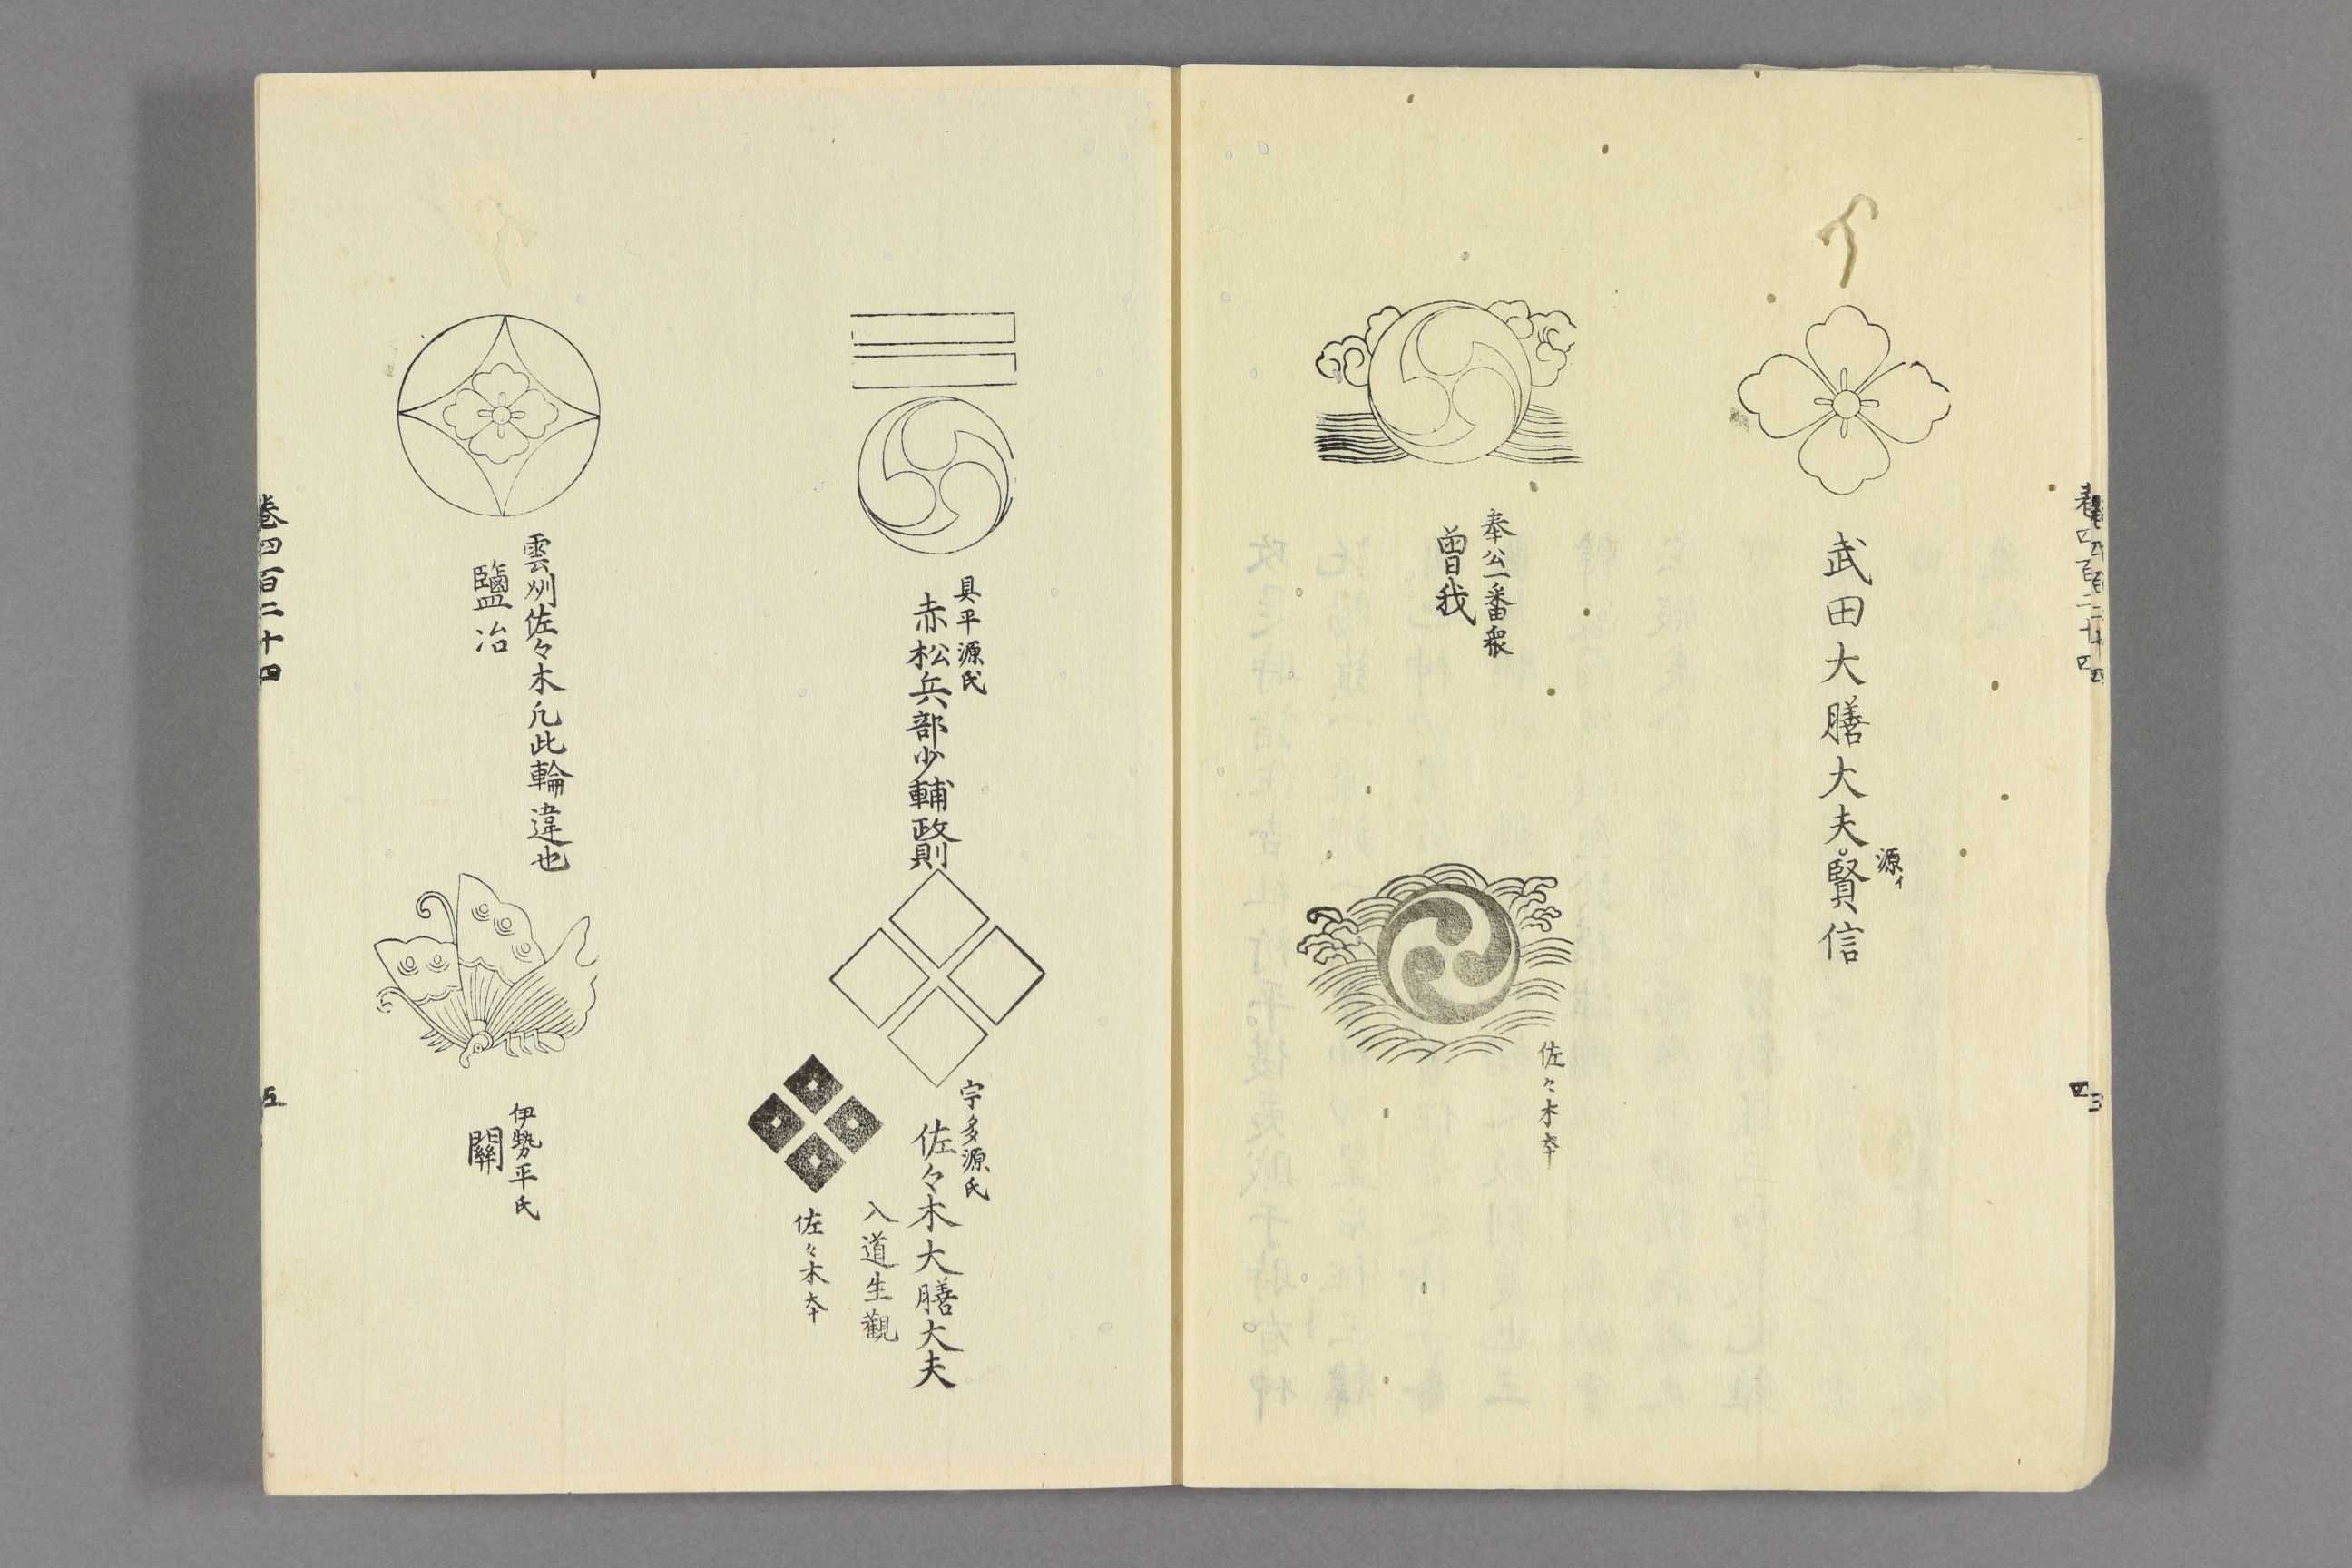 卷四百二十四
武田大膳大夫賢信
源イ
奉公一番衆
曽我
佐々木本
具平源氏
赤松兵部少輔政則
宇多源氏
佐々木大膳大夫
入道生觀
佐々木本
雲刕佐々木凢此輪違也
鹽冶
伊勢平氏
關
卷四百二十四
五